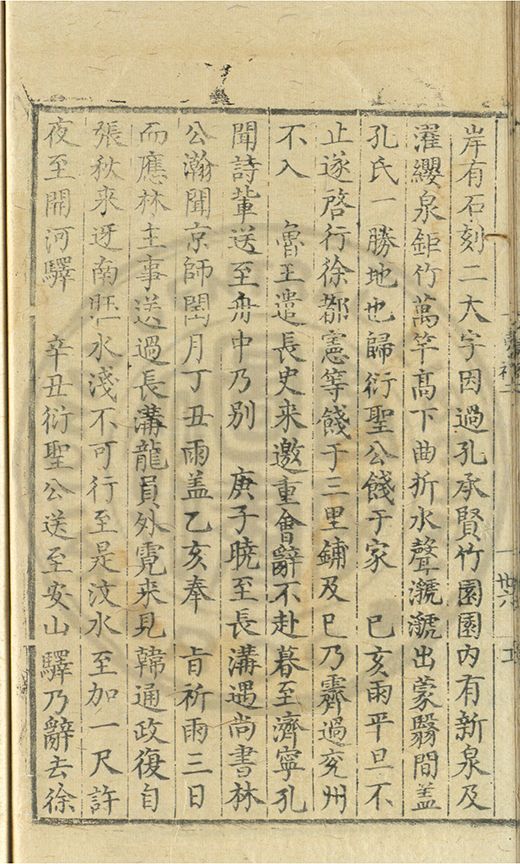 岸有石刻二大字因過孔承賢竹園園内有新泉及
濯纓泉鉅竹萬竿髙下曲折水聲㶁㶁出蒙翳間盖
孔氏一勝地也歸衍聖公餞于家　已亥雨平旦不
止遂啓行徐都憲等餞于三里鋪及巳乃霽過兖州
不入　魯王遣長史来邀重會辭不赴暮至濟寧孔
聞詩軰送至舟中乃别　庚子暁至長溝遇尚書林
公瀚聞京師閏月丁丑雨盖乙亥奉　㫖祈雨三日
而應林主事送過長溝龍員外霓来見韓通政復自
張秋来迓南旺水淺不可行至是汶水至加一尺許
夜至開河驛　辛丑衍聖公送至安山驛乃辭去徐